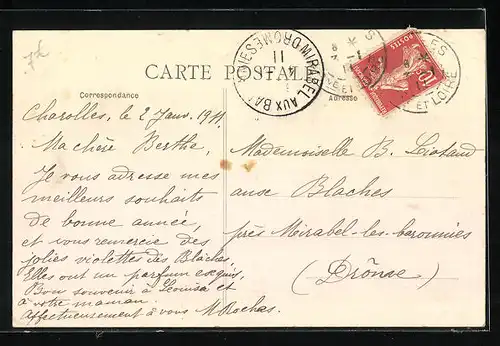 CARTE POSTALE
Correspondance
Adresse
MIRABEL AUX BARONNIES DROME
11
ET LOIRE
POSTES
10
Charolles, le 2 Janv. 1911.
Ma chère Berthe,
Je vous adresse mes
meilleurs souhaits
de bonne année,
et vous remercie des
jolies violettes des Blaches.
Elles ont un parfum exquis,
Bon souvenir à Léonisa et
à votre maman.
affectueusement à vous M Rochas.
Mademoiselle B. Liotaud
aux Blaches
près Mirabel-les-baronnies
(Drôme)